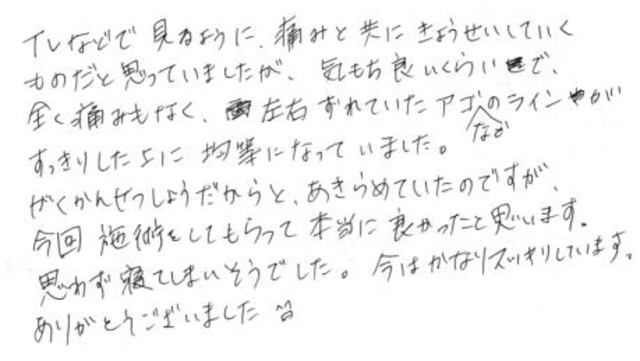 イレなどで見るように、痛みと共にきょうせいしていく
ものだと思っていましたが、気もち良いくらいで、
全く痛みもなく、左右ずれていたアゴのラインなどが
すっきりした上に均等になっていました。
がくかんせつしょうだからと、あきらめていたのですが、
今回施術をしてもらって本当に良かったと思います。
思わず寝てしまいそうでした。今はかなりスッキリしています。
ありがとうございました ^^